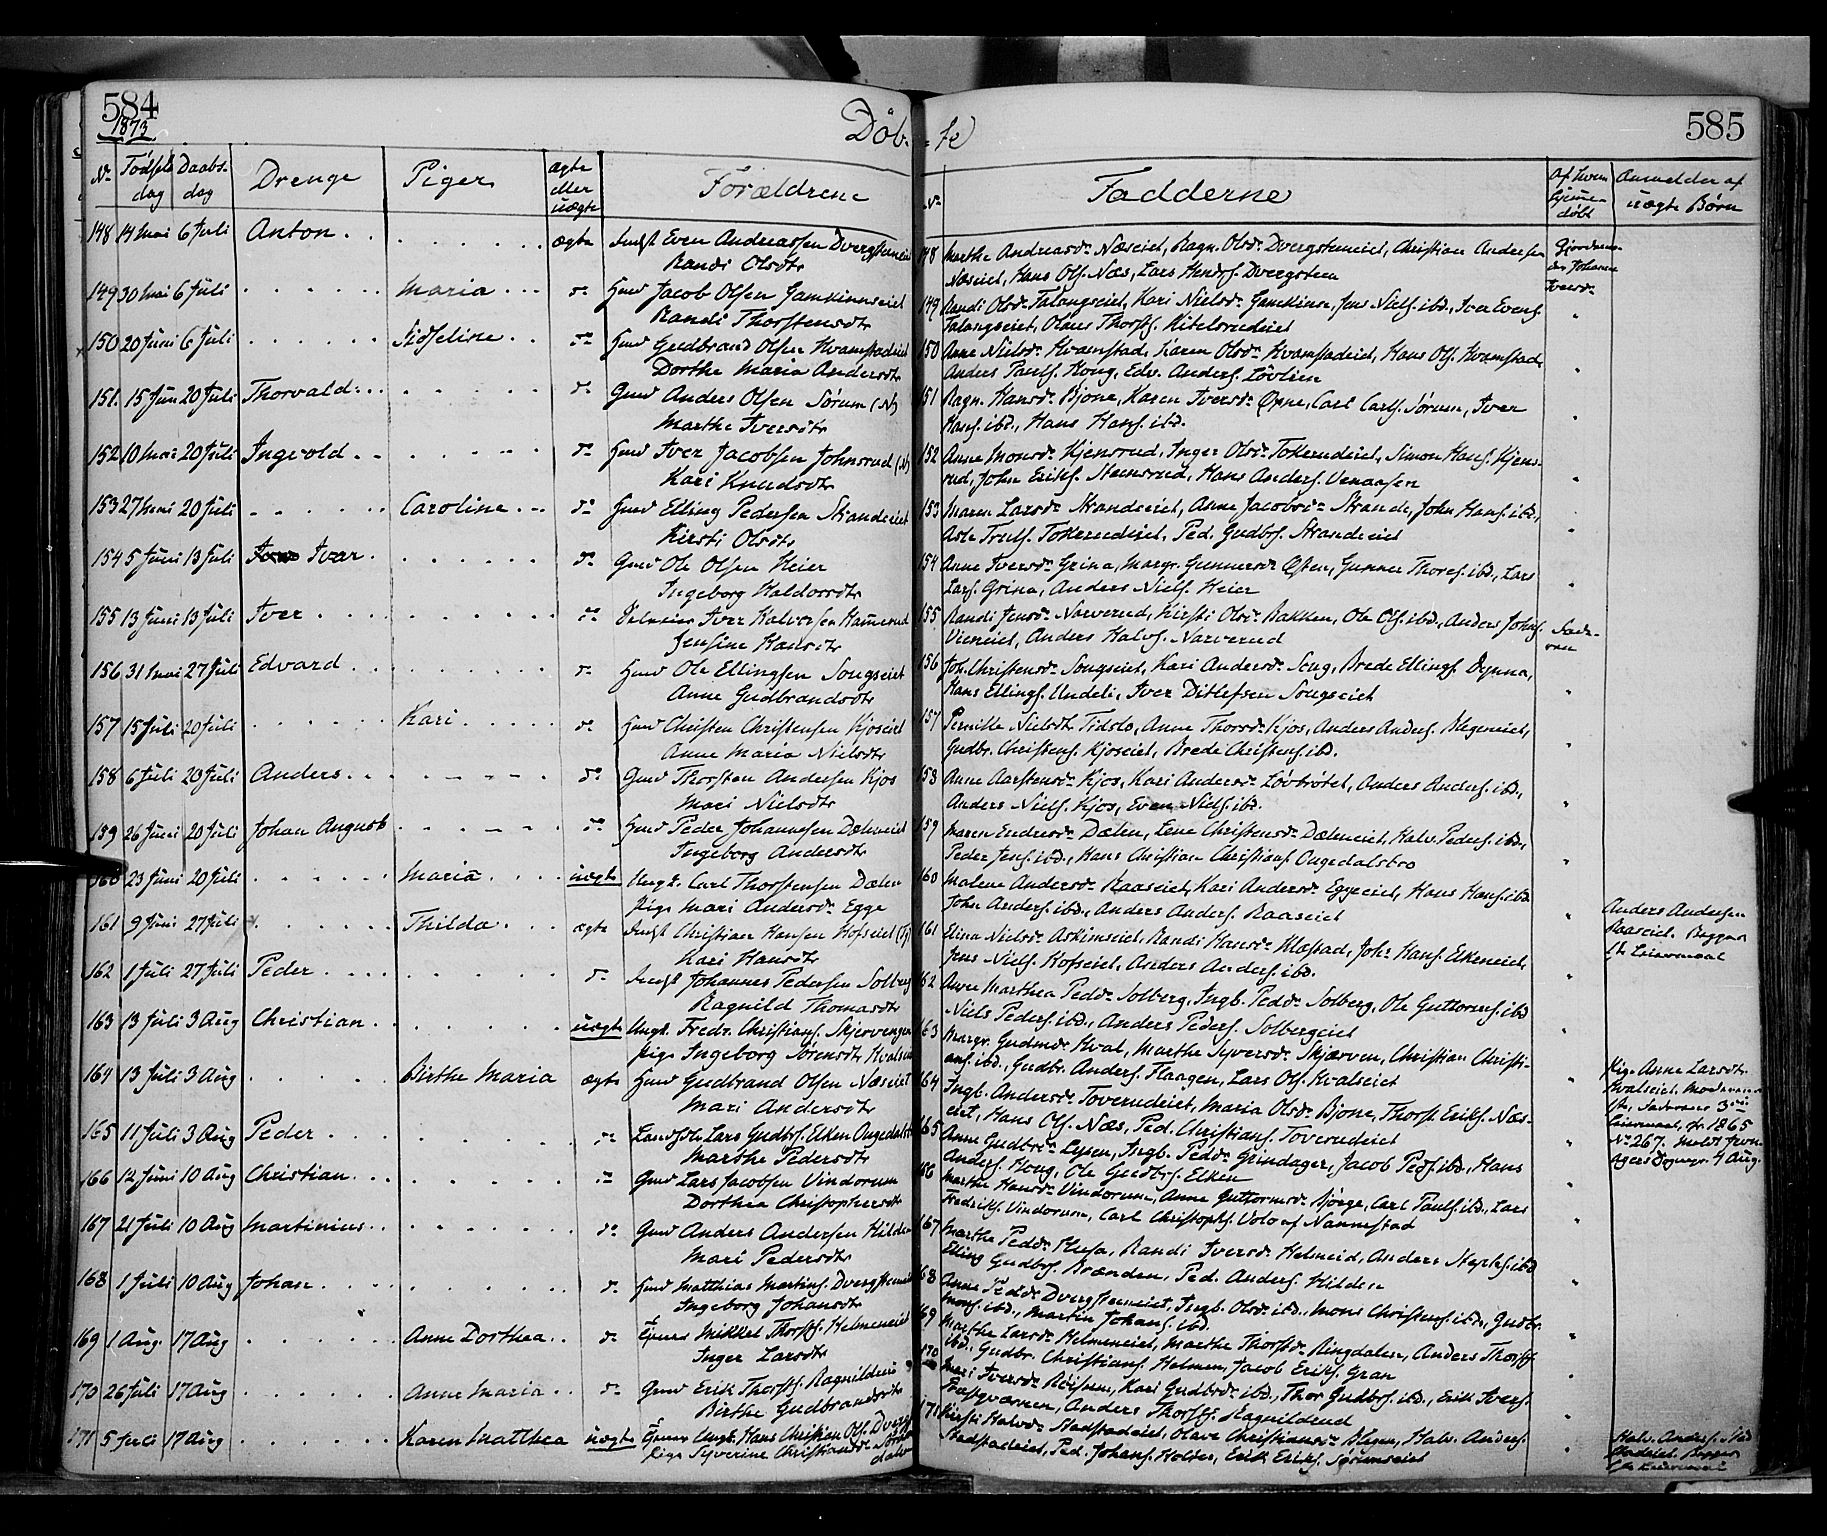 584
1873
Döb-
N° Fødsels dag Daabs- dag Drenge Piger ægte eller uægte Forældrene
148 14 Mai 6 Juli Anton ægte Indst Even Andreassen
Randi Olsdtr
149 30 Mai 6 Juli Maria do Huusmd Jacob Olsen
Randi Thorstensdtr
150 20 Juni 6 Juli Sidseline do Huusmd Gudbrand Olsen Kvamstadeiet
Dorthe Maria Andersdtr
151. 15 Juni 20 Juli Thorvald do Gmd Anders Olsen Sørum (N)
Marthe Iversdtr
152 10 Mai 20 Juli Ingvold do Huusmd Iver Jacobsen Johnsrud (N)
Kari Knudsdtr
153 27 Mai 20 Juli Caroline do Huusmd Elling Pedersen Strandeiet
Kirsti Olsdtr
154 5 Juni 13 Juli Ivar do Gmd Ole Olsen Heier
Ingeborg Haldorsdtr
155 13 Juni 13 Juli Iver do Iver Halvorsen
Jensine Hansdtr
156 31 Mai 27 Juli Edvard do Huusmd Ole Ellingsen Songseiet
Anne Gudbrandsdtr
157 15 Juli 20 Juli Kari do Huusmd Christen Christensen Kjoseiet
Anne Maria Nielsdtr
158 6 Juli 20 Juli Anders do Gmd Thorsten Andersen Kjos
Mari Nielsdtr
159 26 Juni 20 Juli Johan August do Huusmd Peder Johannesen Dæleneiet
Ingeborg Andersdtr
160 23 Juni 20 Juli Maria uægte Ungk. Carl Thorstensen Dælen
Pige Mari Andersdr Egge
161 9 Juni 27 Juli Thilda ægte Indst Christian Hansen Hofseiet
Kari Hansdtr
162 1 Juli 27 Juli Peder do Indst Johannes Pedersen Solberg
Ragnild Thomasdtr
163 13 Juli 3 Aug Christian uægte Ungk. Fredr. Christians. Skjervengen
Pige Ingeborg Sørensdtr
164 13 Juli 3 Aug Birthe Maria ægte Huusmd Gudbrand Olsen Næseiet
Mari Andersdtr
165 11 Juli 3 Aug Peder do Lars Gudbrs. Elken
Marthe Pedersdtr
166 12 Juni 10 Aug Christian do Gmd Lars Jacobsen Vindorum
Dorthea Christophersdtr
167 21 Juli 10 Aug Martinius do Gmd Anders Andersen Hilden
Mari Pedersdtr
168 1 Juli 10 Aug Johan do Huusmd Matthias Martins.
Ingeborg Johansdtr
169 1 Aug. 17 Aug Anne Dorthea do Mikkel Thorsts. Helmeneiet
Inger Larsdtr
170 26 Juli 17 Aug Anne Maria do Gmd Erik Thorsts. Ragnildrud
Birthe Gudbrandsdtr
171 5 Juli 17 Aug Karen Matthea uægte Ungk. Hans Christian Ols.
Pige Syverine Christiansdr
585
te
N° Fadderne Af hvem hjemme- døbt Anmelder af uægte Børn
148 Marthe Andreasdr Næseiet, Ragn. Olsdr Dvergsteneiet, Christian Andersen
Næseiet, Hans Ols. Næs, Lars Dvergsten
149 Randi Olsdr Falangseiet, Kari Nielsdr, Jens Niels. ibd., Iver Evens.
Falangseiet, Olaus Thorsts.
150 Anne Nielsdr Kvamstad, Karen Olsdr Kvamstadeiet, Hans Ols. Kvamstad,
Anders Pauls. Houg, Edv. Anders. Løvlien
151 Ragn. Hansdr Bjone, Karen Iversdr, Carl Carls. Sørum, Iver
Hans. ibd., Hans Hans. ibd.
152 Anne Monsdr Kjensrud, Inger Olsdr Tokerudeiet, Simon Hans. Kjens-
rud, John Eriks. Steensrud, Hans Anders. Venaasen
153 Maren Larsdr Strandeiet, Anne Jacobsdr Strande, John Hans. ibd.,
Asle Truls. Tokerudeiet, Ped. Gudbrs. Strandeiet
154 Anne Iversdr Grina, Margr. Gunnersdr Østen, Gunner Thores. ibd., Lars
Lars. Grina, Anders Niels. Heier
155 Randi Jensdr Narverud, Kirsti Olsdr Bakken, Ole Ols. ibd., Anders Johs.
Vieneiet, Anders Halvs. Narverud
156 Joh. Christensdr Songseiet, Kari Andersdr Song, Brede Ellings. Dynna,
Hans Ellings. Undeli, Iver Ditlefsen Songseiet
157 Pernille Nielsdtr, Anne Thorsdr Kjos, Anders Anders. Blegeneiet,
Gudbr. Christens. Kjoseiet, Brede Christens. ibd.
158 Anne Aarstensdr Kjos, Kari Andersdr Løvbrøtet, Anders Anders. ibd.,
Anders Niels. Kjos, Even Niels. ibd.
159 Maren Endresdr Dælen, Lene Christensdr Dæleneiet, Halv. Peders. ibd.,
Peder Jens. ibd., Hans Christian Christians. Ongedalsbro
160 Malene Andersdr Raaseiet, Kari Andersdr Eggeeiet, Hans Hans. ibd.
John Anders. ibd., Anders Anders. Raaseiet
Anders Andersen
Raaseiet. Begges
1te Leiermaal
161 Elina Nielsdr Askimseiet, Randi Hansdr Klæstad, Joh. Hans. Ekeneiet,
Jens Niels. Hofseiet, Anders Anders. ibd.
162 Anne Marthea Peddr Solberg, Ingb. Peddr Solberg, Ole Guttorms. ibd
Niels Peders. ibd., Anders Peders. Solbergeiet
163 Margr. Gudmdr Hval, Marthe Syversdr Skjerven, Christian Christi-
ans. ibd., Gudbr. Anders. Haagen, Lars Ols. Hvalseiet
Pige Anne Larsdtr
Hvalseiet.
164 Ingb. Andersdr Toverudeiet, Maria Olsdr Bjone, Thorst. Eriks. Næs-
eiet, Hans Ols. Næs, Ped. Christians. Toverudeiet
Leiermaal, fr. 1865
N° 267.
165 Anne Gudbrdr Lysen, Ingb. Peddr Grindager, Jacob Peds. ibd., Hans
Anders. Houg, Ole Gudbrs. Elken
166 Marthe Hansdr Vindorum, Anne Guttormsdr Bjørge, Carl Pauls. ibd., Lars
Fredriks. Vindorum, Carl Christophs. Volo af Nannestad
167 Marthe Peddr, Randi Iversdr Helmeid, Anders ibd
Elling Gudbrs. Brænden, Ped. Anders. Hilden
168 Anne Peddr Dvergsteneiet, Ingb. Olsdr ibd., Mons Christens. ibd., Gudbr.
Mons. ibd., Martin Johans. ibd.
169 Marthe Larsdr Helmeneiet, Marthe Thorstdr Ringdalen, Anders Thorsts.
ibd., Gudbr. Christians. Helmen, Jacob Eriks. Gran
170 Mari Iversdr Røisum, Kari Gudbrdr ibd., Thor Gudbrs. ibd., Erik Ivers.
Anders Thorsts. Ragnildrud
171 Kirsti Halvdr Stadstadeiet, Olave Christiansdr Blegen, Halv. Anders.
Stadstadeiet, Ped. Johans. Holter, Erik Eriks. Sørumseiet
Halv. Anders.